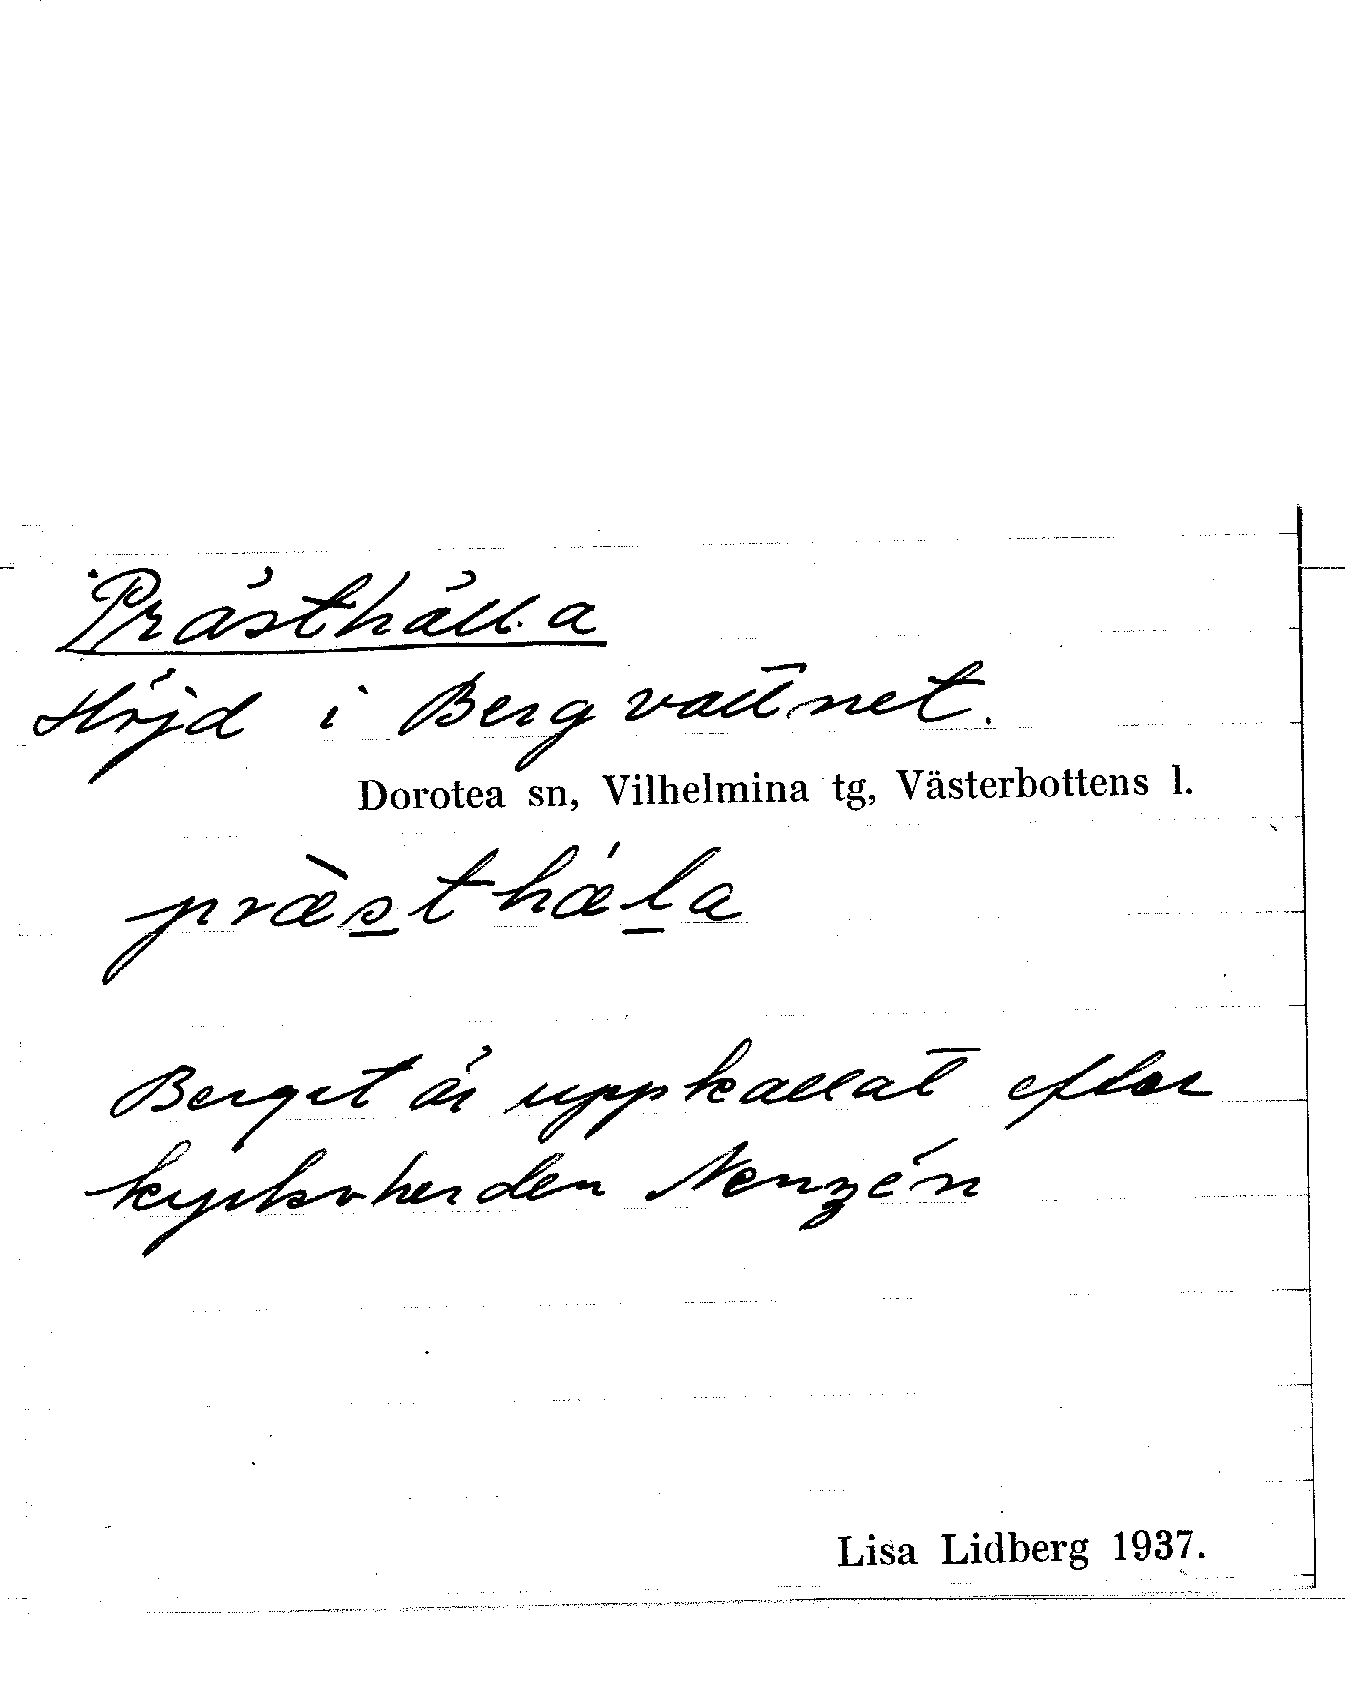 Prästhälla
Höjd i Bergvattnet.
Dorotea sn, Vilhelmina tg, Västerbottens l.
præ̀s̲thǽl̲a
Berget är uppkallat efter
kyrkoherden Nenzén
Lisa Lidberg 1937.